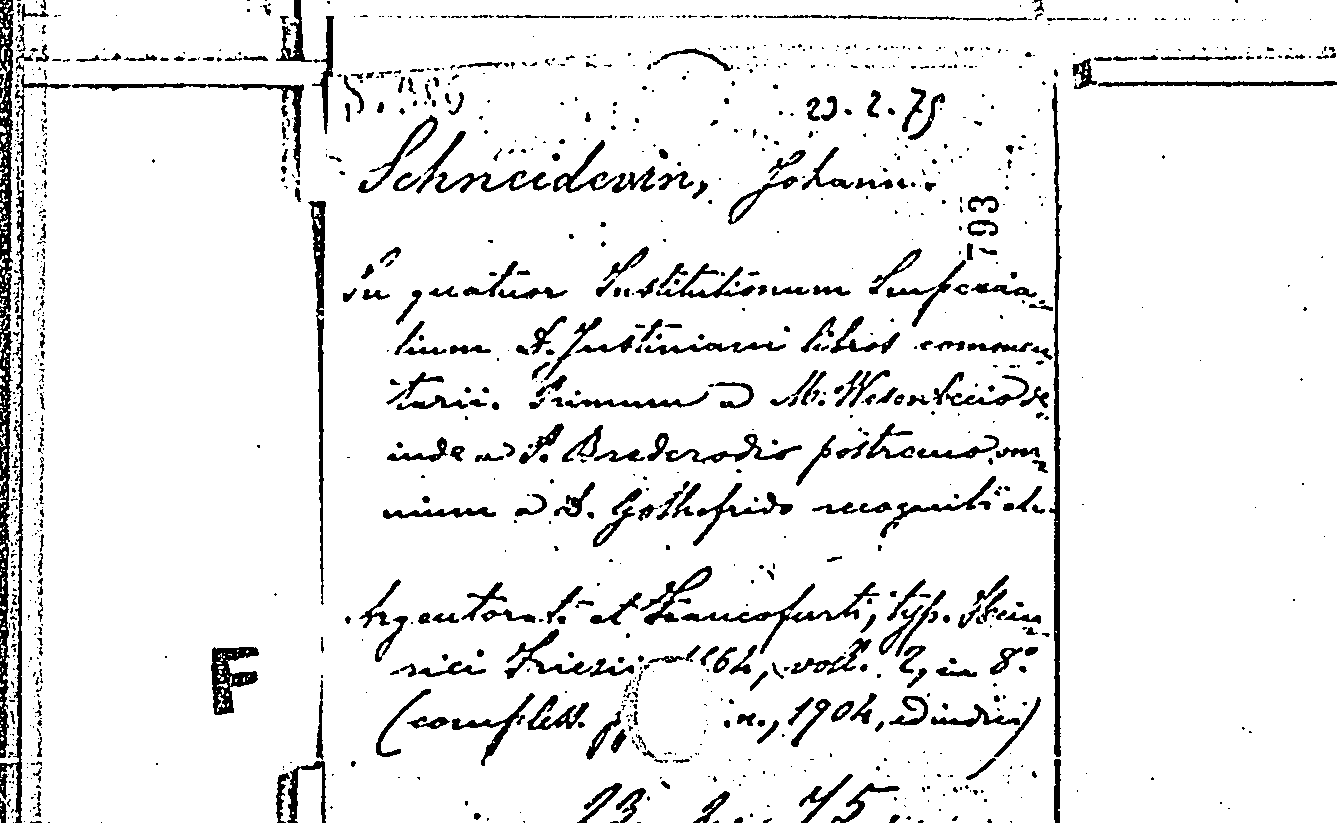 23.2.75
Schneidewin, Johann.
793
In quatuor Institutionum Imperia-
lium D. Justiniani libros commen-
tarii. Primum a M. Wesenbecio de-
inde a P. Brederodio postremo om-
nium a D. Gothofrido recogniti etc.
Argentorati et Francofurti, typ. Hein-
rici Friesii 1664, voll. 2, in 8º
(compless. in., 1904, ed indici)
F
23 2 75